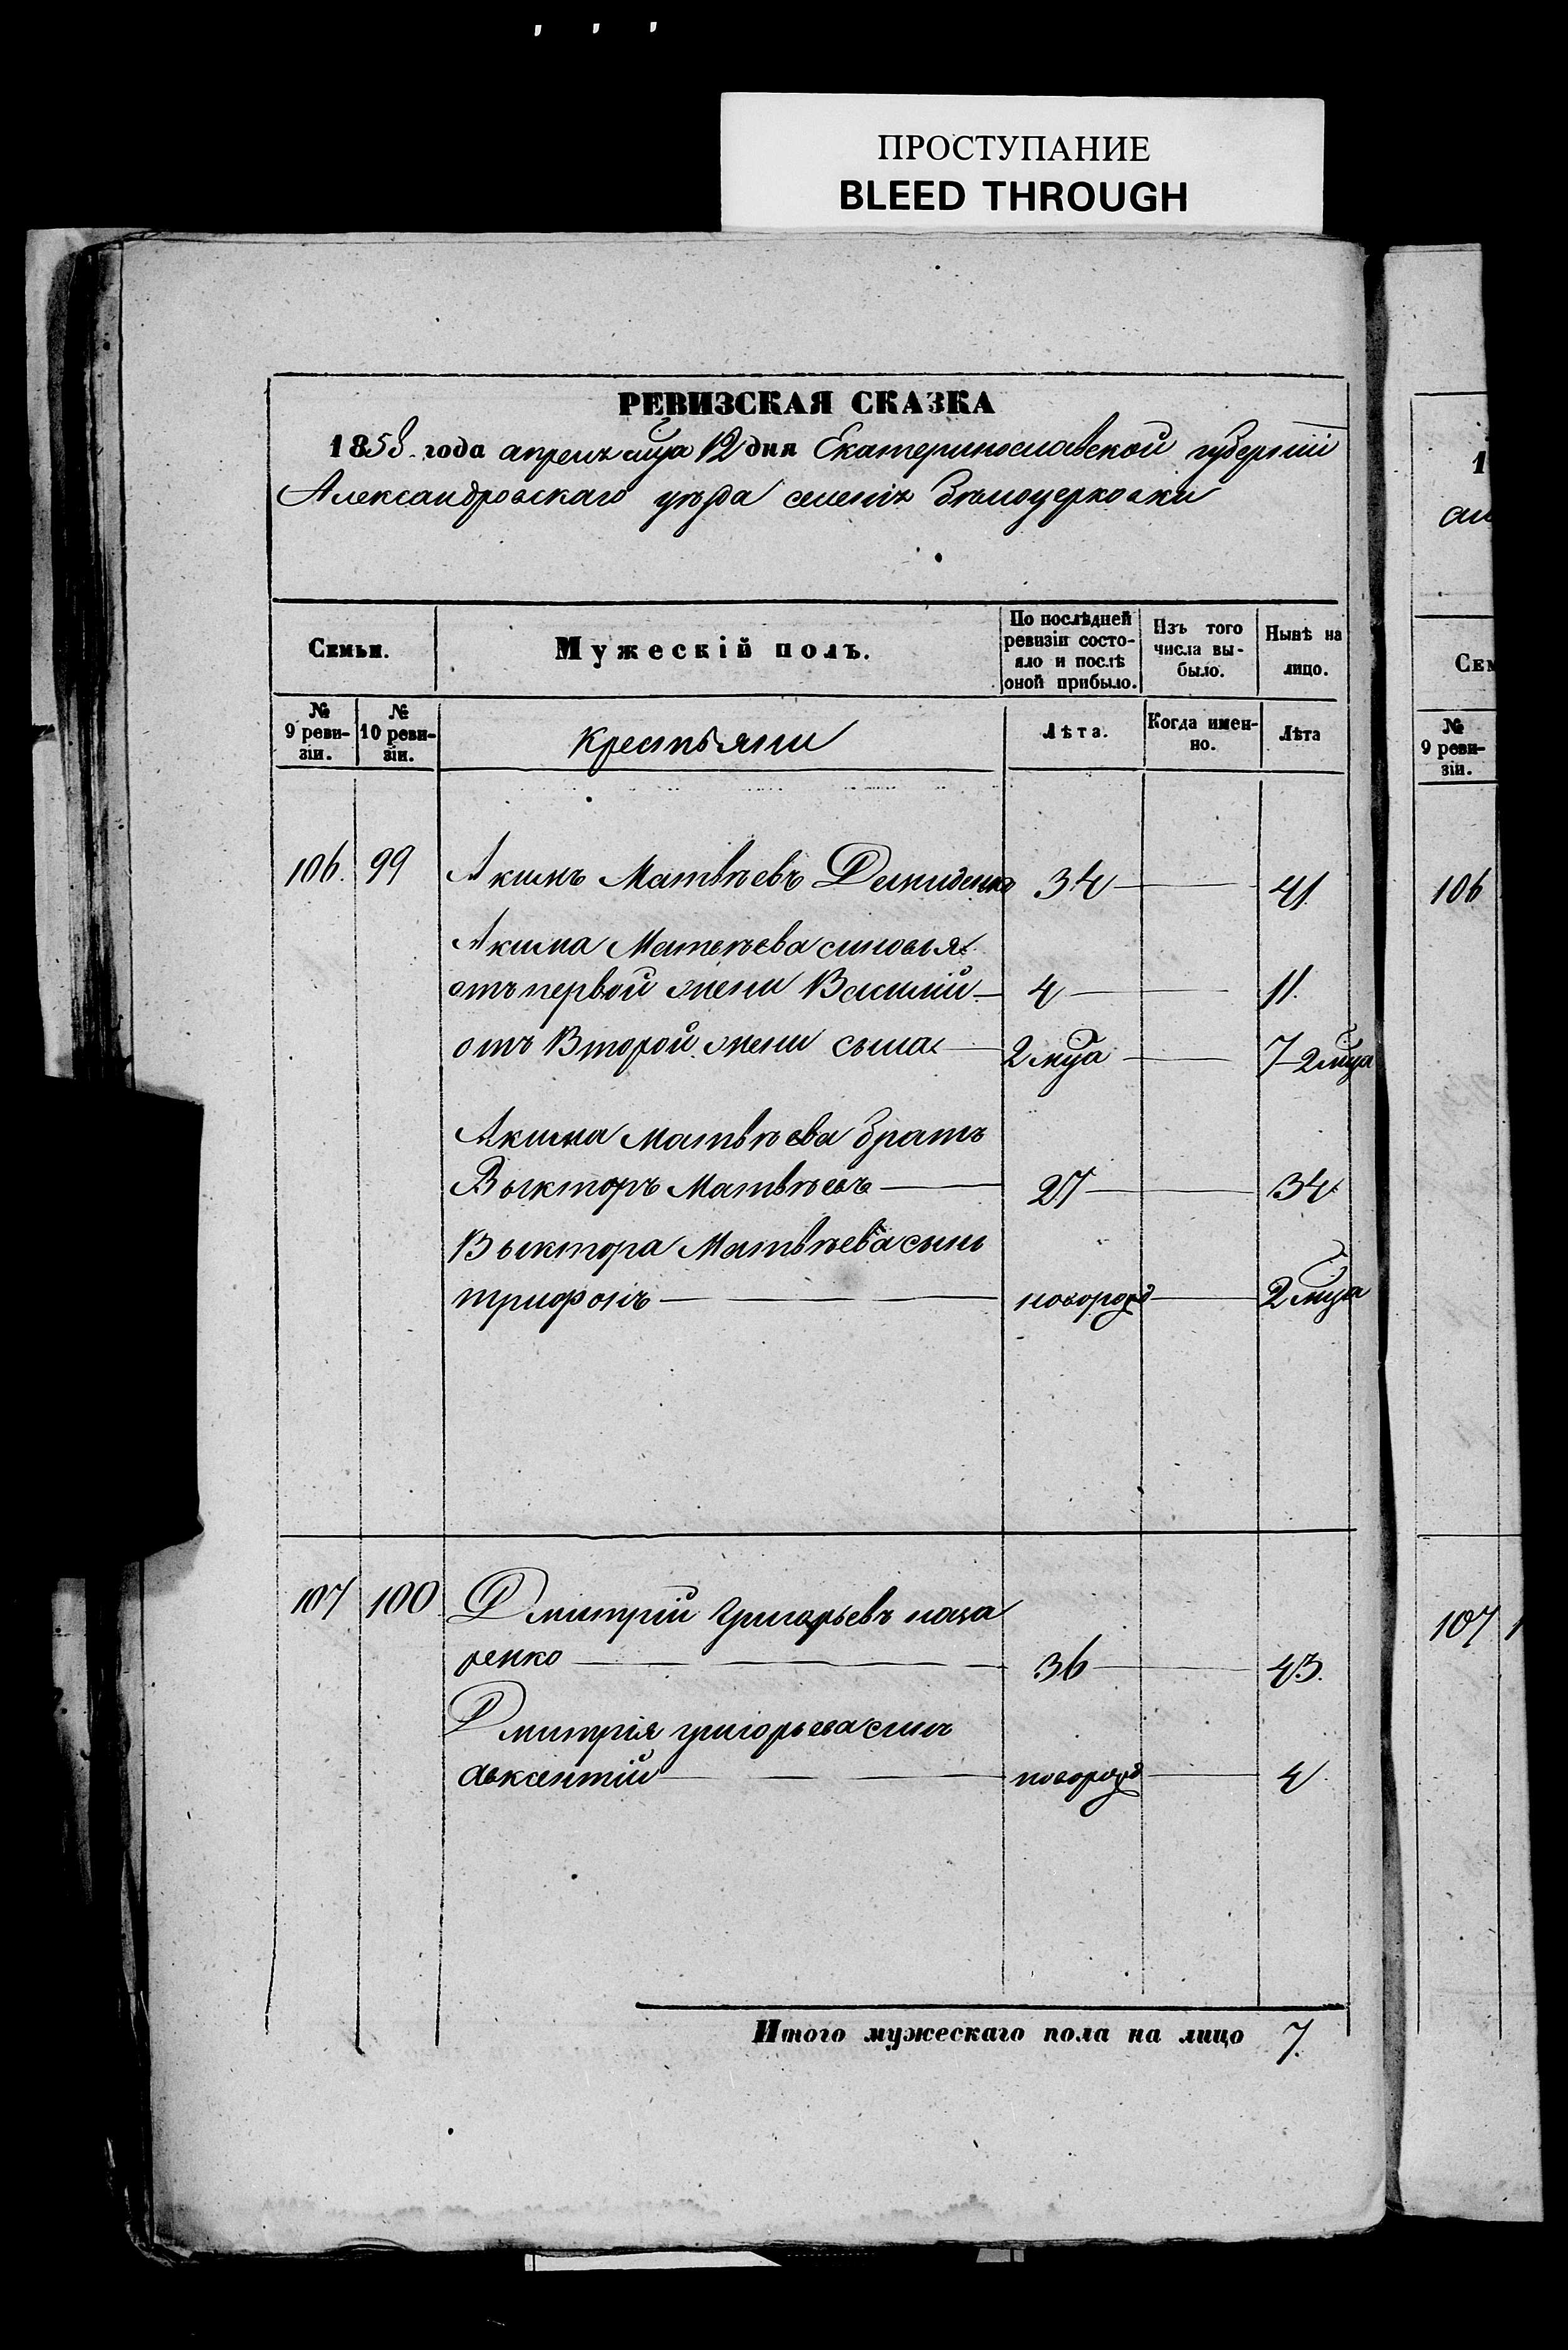 ПРОСТУПАНИЕ
BLEED THROUGH
РЕВИЗСКАЯ СКАЗКА
1858 года апреля мца 12 дня Екатеринославской губернiи
Александровскаго уѣзда селенiя бѣлоцерковки
Семьи. Мужескiй полъ. По послѣдней ревизiи состояло и послѣ оной прибыло. Изъ того числа выбыло. Нынѣ на лицо.
№ 9 ревизiи. № 10 ревизiи. Крестьяни Лѣта. Когда именно. Лѣта
106. 99 Акимъ Матвѣевъ Демиденко 34 41
Акима Матвѣева синовья
отъ первой жени Василiй 4 11.
отъ Второй жени сыма 2 мца 7 2 мца
Акима Матвѣева братъ
Выкторъ Матвѣевъ 27 34
Выктора Матвѣева сынъ
трифонъ новорозд 2 мца
107 100 Дмитрiй Григорьевъ наза
ренко 36 43.
Дмитрiя григорьева синъ
авксентiй новорозд 4
Итого мужескаго пола на лицо 7.
1
СЕМ
№
9 реви-
зiи.
106
107